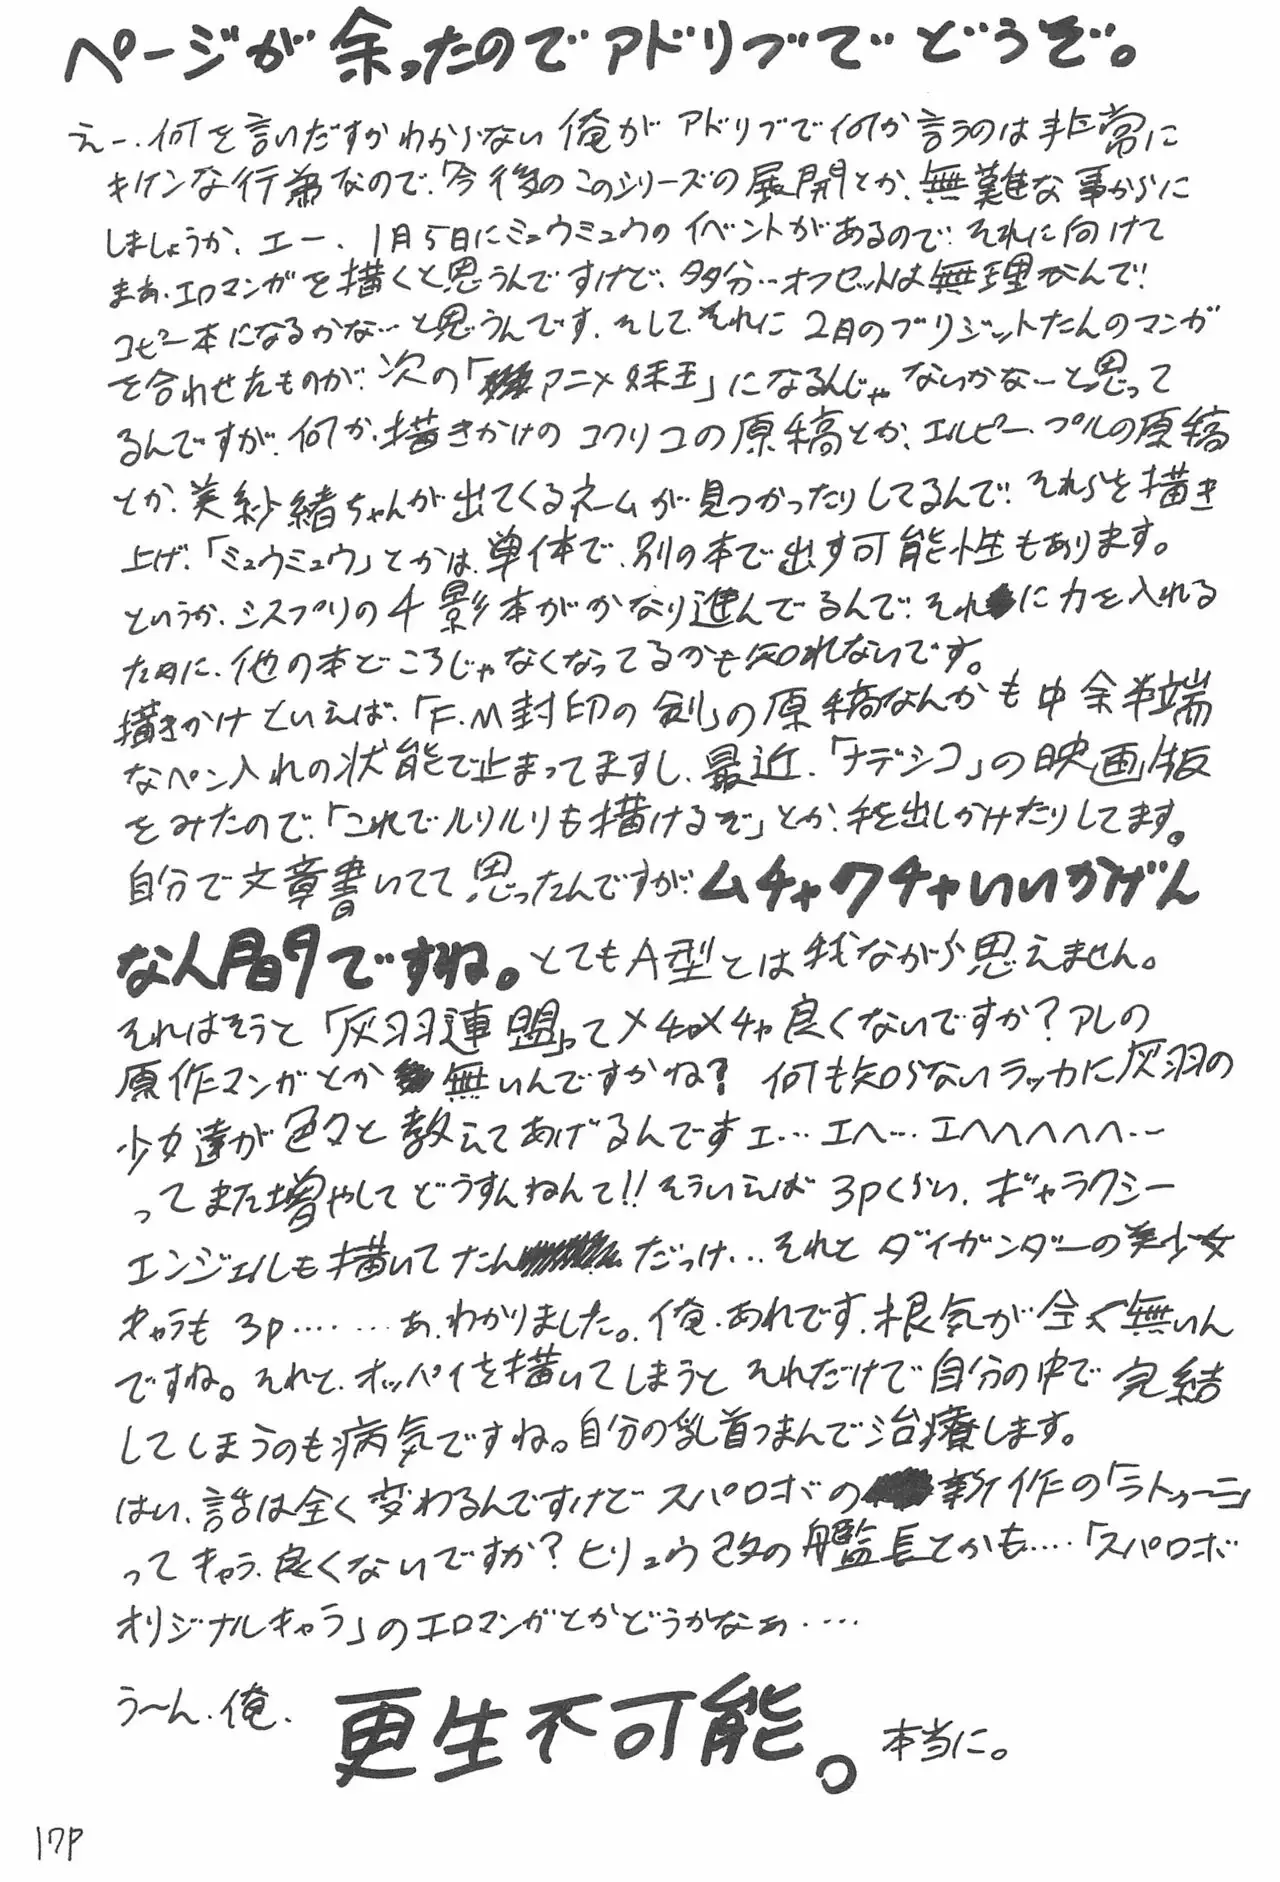 ページが余ったのでアドリブでどうぞ。
えー、何を言いだすかわからない俺がアドリブで何か言うのは非常に
キケンな行為なので、「今後のこのシリーズの展開とか、無難な事からに
しましょうか、エー、1月5日にミュウミュウのイベントがあるので、それに向けて
まあ、エロマンガを描くと思うんですけど、多分…オフセットは無理なんで、
コピー本になるかな…と思うんです、そして、それに2月のブリジットたんのマンガ
を合わせたものが、次の「アニメ妹王」になるんじゃないかなーと思って
るんですが、何か、描きかけのコクリコの原稿とか、エルピー・プルの原稿
とか、美紗緒ちゃんが出てくるネームが見つかったりしてるんで、それらを描き
上げ、「ミュウミュウ」とかは、単体で、別の本で出す可能性もあります。
というか、シスプリの千影本がかなり進んでるんで、それに力を入れる
ために、他の本どころじゃなくなってるかも知れないです。
描きかけといえば、「F.M封印の剣」の原稿なんかも中余半端
なペン入れの状態で止まってますし、最近、「ナデシコ」の映画版
をみたので、「これでルリルリも描けるぞ」とか、手を出しかけたりしてます。
自分で文章書いてて思ったんですが、ムチャクチャいいかげん
な人間ですね。とてもA型とは我ながら思えません。
それはそうと「灰羽連盟」ってメチャメチャ良くないですか?アレの
原作マンガとか無いんですかね?何も知らないラッカに灰羽の
少女達が色々と教えてあげるんですェ…エヘ…エヘヘヘヘヘ…
ってまた増やしてどうすんねんて!!そういえば3pくらい、ギャラクシー
エンジェルも描いてたんだっけ…それとダイガンダーの美少女
キャラも3p……あ、わかりました。俺、あれです、根気が全く無いん
ですね。それと、オッパイを描いてしまうとそれだけで自分の中で完結
してしまうのも病気ですね。自分の乳首つまんで治療します。
はい、話は全く変わるんですけどスパロボの新作の「ラトゥーニ」
ってキャラ、良くないですか?ヒリュウ改の艦長とかも…「スパロボ
オリジナルキャラ」のエロマンガとかどうかなぁ…
う〜ん、俺、更生不可能。本当に。
17P